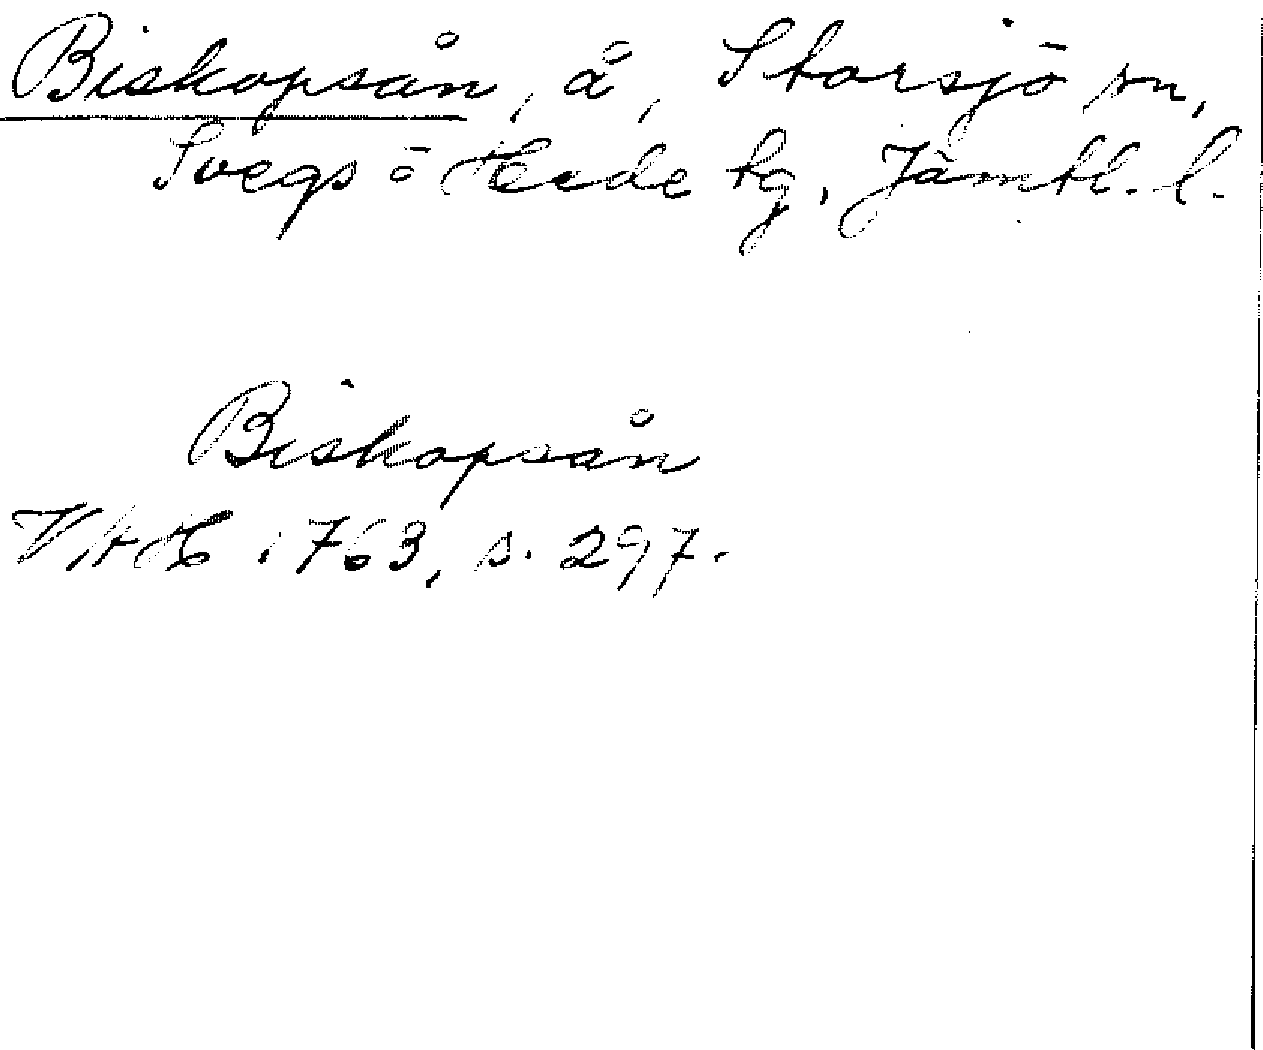 Biskopsån, å, Storsjö sn,
Svegs o Hede tg, Jämtl. l.
Biskopsån
VAH 1763, s. 297.